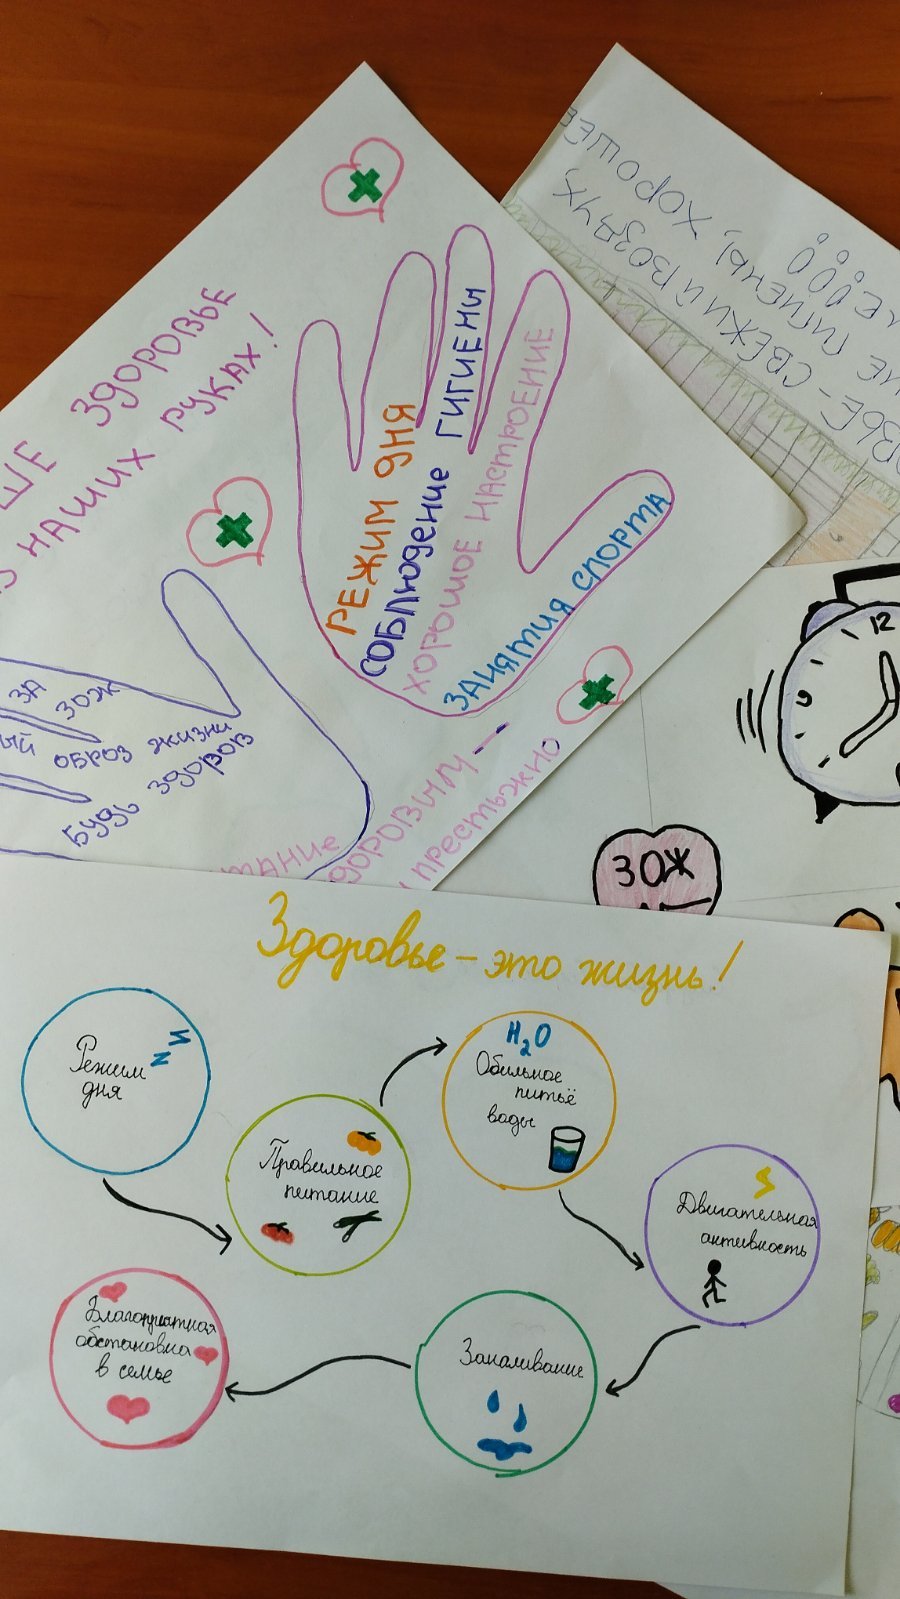 ШЕ ЗДОРОВЬЕ
НАШИХ РУКАХ!
РЕЖИМ ДНЯ
СОБЛЮДЕНИЕ ГИГИЕНЫ
ХОРОШОЕ НАСТРОЕНИЕ
ЗАНЯТИЯ СПОРТА
ЗА
ЗОЖ
ЫЙ ОБРОЗ ЖИЗНИ
БУДЬ ЗДОРОВ
ТАНИЕ
ДОРОВИМ –
ПРЕСТЬЖНО
ВЬЕ – СВЕЖИЙ ВОЗДУХ,
ИЕ ГИГИЕНЫ, ХОРОШЕЕ
12
ЗОЖ
Здоровье – это жизнь!
Режим
дня
Z Z
Правильное
питание
H₂O
Обильное
питьё
воды
Двигательная
активность
Закаливание
Благоприятная
обстановка
в семье